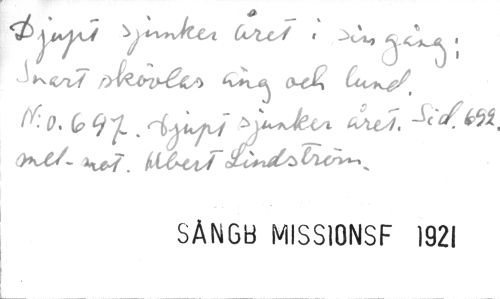 Djupt sjunker året i sin gång;
Snart skövlas äng och lund.
N:o. 697. Djupt sjunker året. Sid. 692.
mel-mot. Albert Lindström.
SÅNGB MISSIONSF 1921